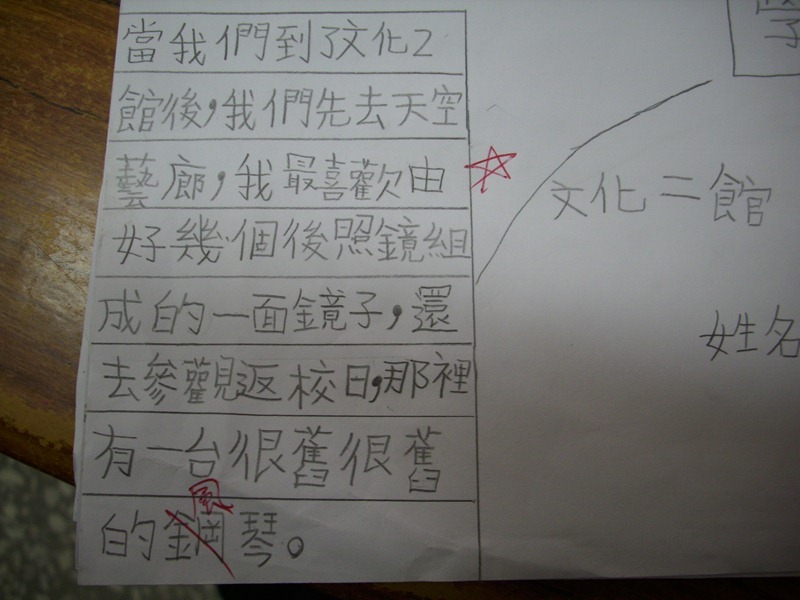 當我們到了文化2
館後,我們先去天空
藝廊,我最喜歡由
好幾個後照鏡組
成的一面鏡子,還
去參觀返校日,那裡
有一台很舊很舊
的鋼琴。
風
文化二館
姓名